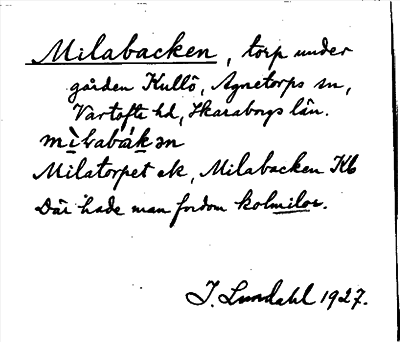 Milabacken, torp under
gården Kullö, Agnetorps sn,
Vartofta hd, Skaraborgs län.
mìlabákən
Milatorpet ek, Milabacken Kb
Där hade man fordom kolmilor.
I. Lundahl 1927.